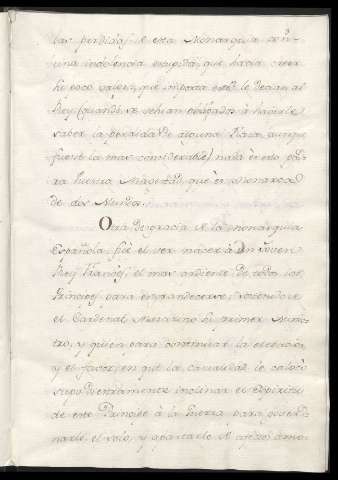 las perdidas de esta Monarquia con
una indolencia estupida, que hacia creer
de poco valor, que importa esto? le decian al
Rey (quando se vehian obligados à hacerle
saber la perdida de alguna Plaza, aunque
fuese la mas considerable) nada es esto pa-
ra Vuestra Magestad que es Monarca
de dos Mundos.
Otra desgracia de la Monarquia
Española, fué el ver nacer à un Joven
Rey Francès el mas ardiente de todos los
Principes para engrandecerse, sosteniendole
el Cardenal Mazarino su primer Minis-
tro, y quien para continuar la
y el favor, en que la casualidad le colocò
supo diestramente inclinar el Espiritu
de este Principe à la Guerra para gover-
narle el solo, y apartarle de